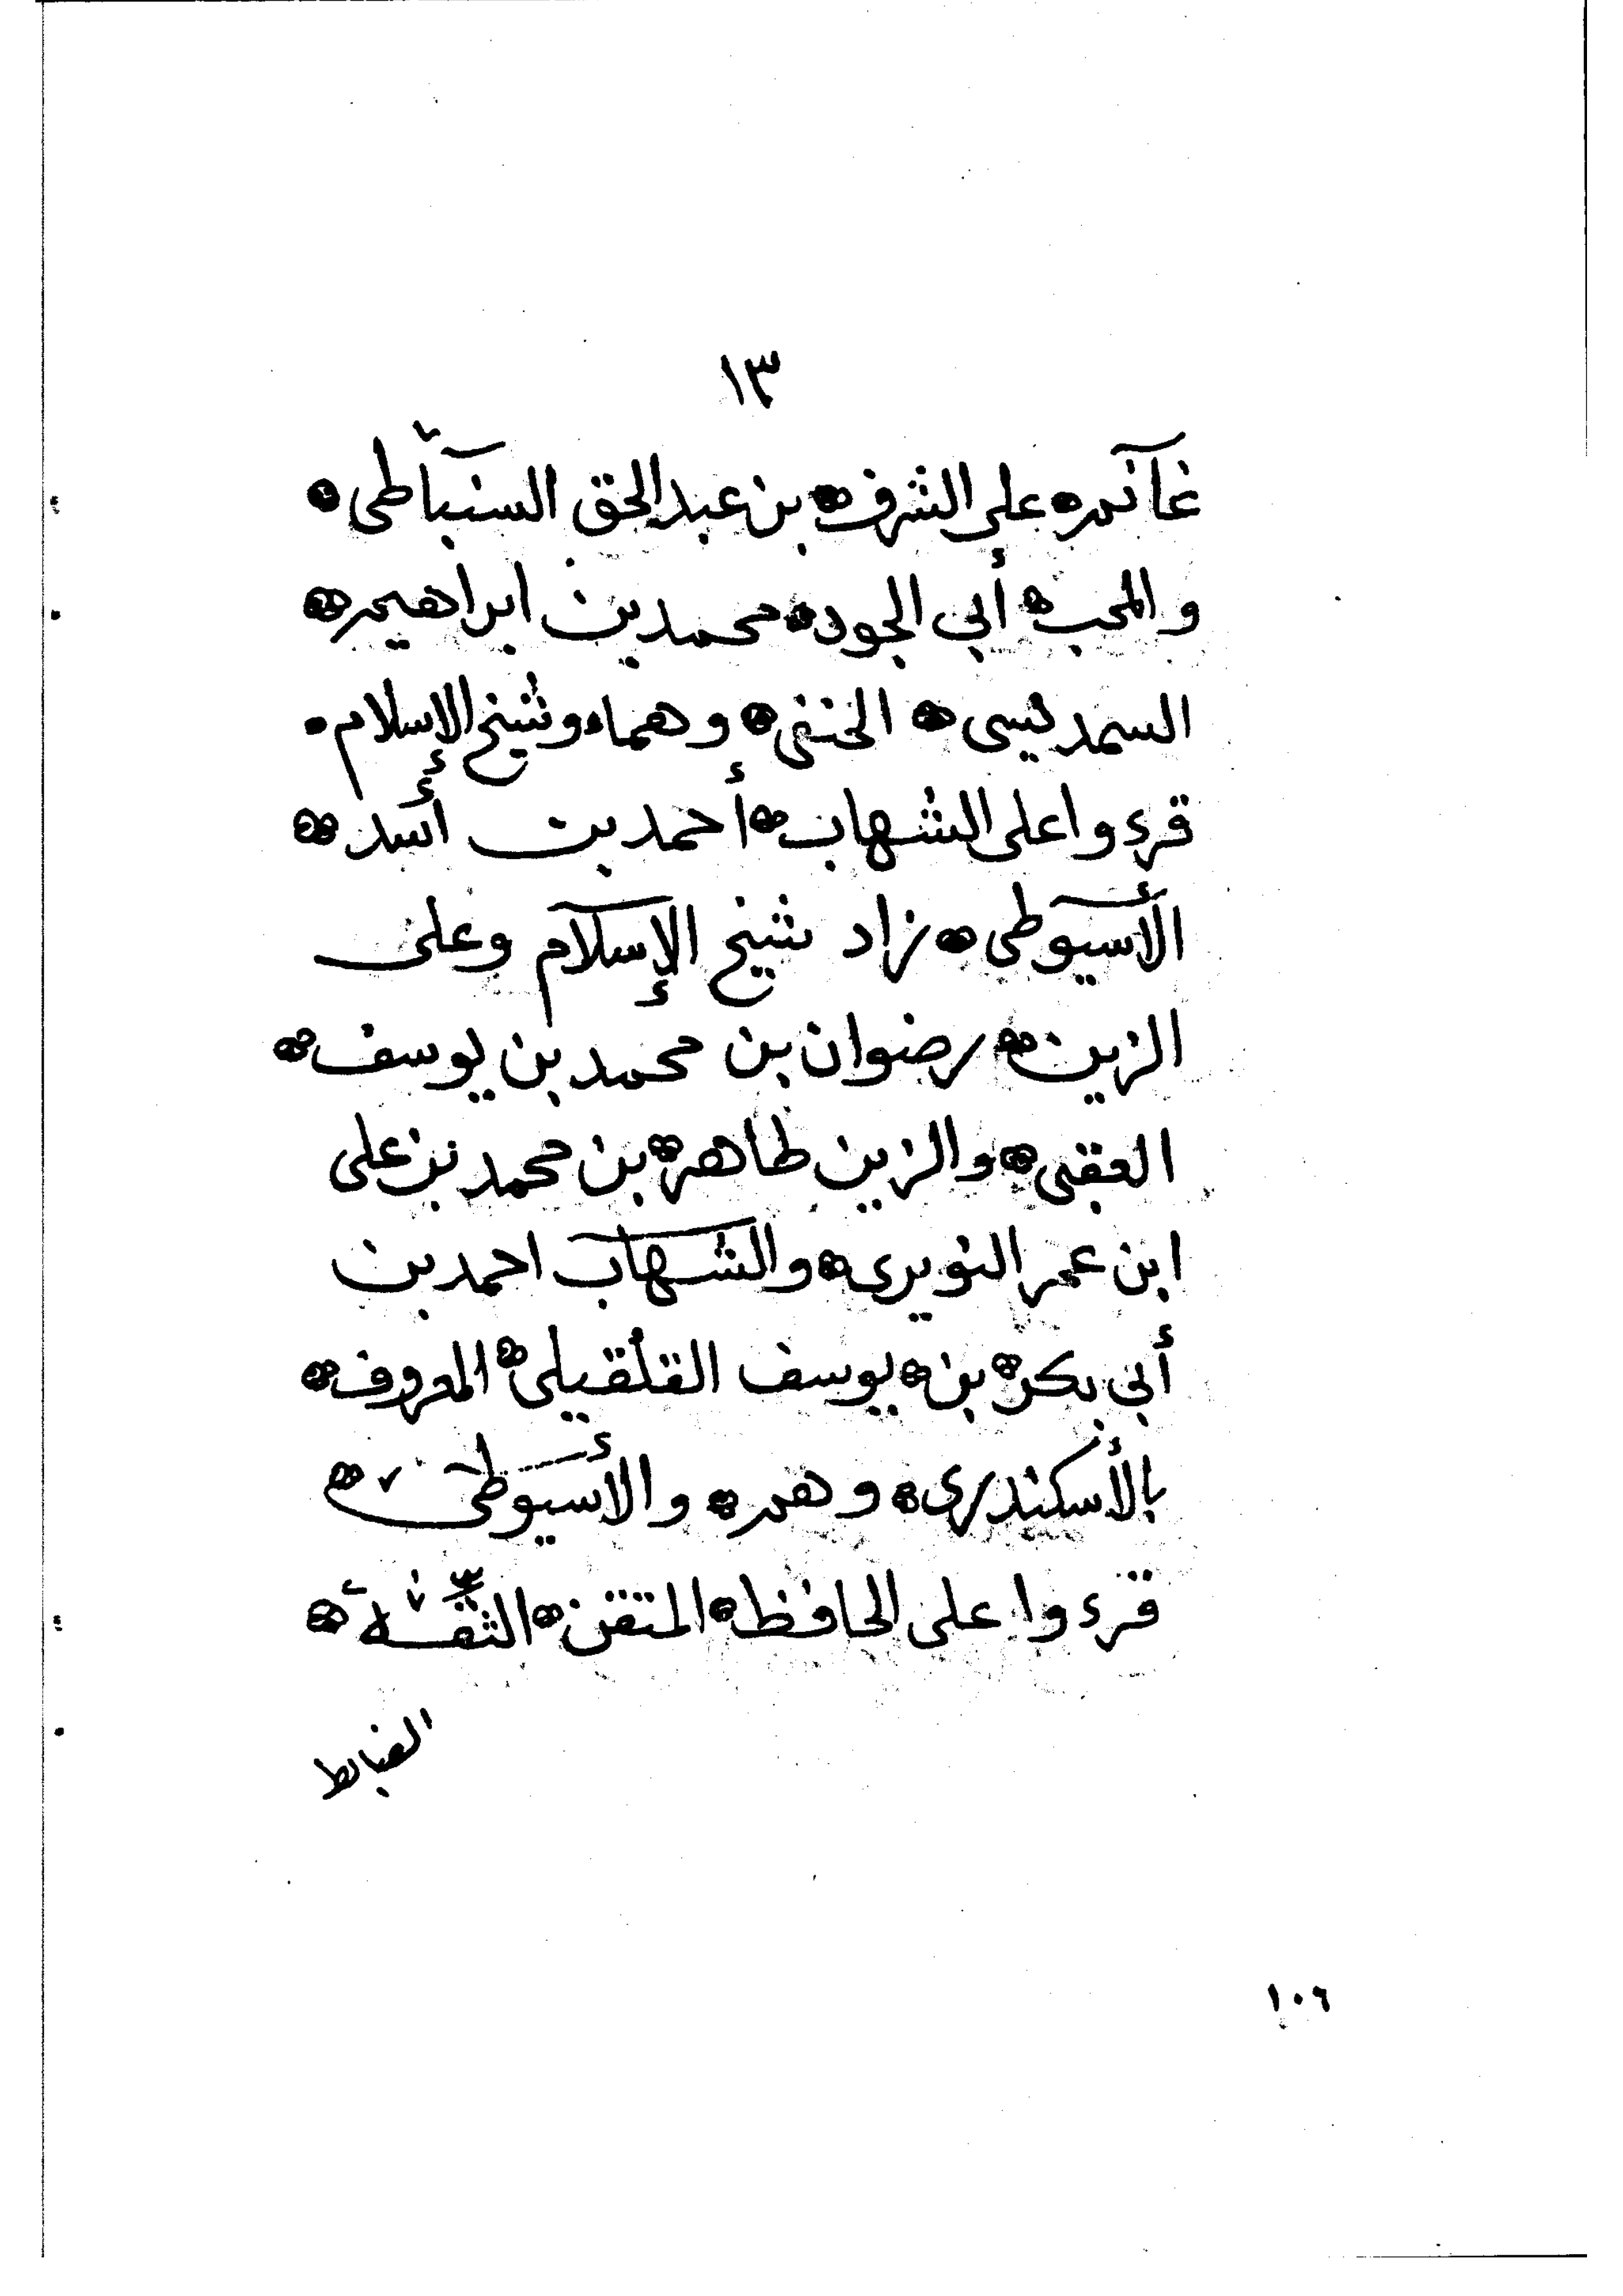 ١٣
غانم على الشرف بن عبد الحق السنباطى
والمحب أبي الجود محمد بن ابراهيم
السمديسى الحنفى وهما وشيخ الإسلام
قرءوا على الشهاب أحمد بن أسد
الأسيوطى زاد شيخ الإسلام وعلى
الزين رضوان بن محمد بن يوسف
العقبى والزين طاهر بن محمد بن على
ابن عمر النويرى والشهاب احمد بن
أبي بكر بن يوسف القلقيلى المعروف
بالأسكندرى وهم والأسيوطى
قرءوا على الحافظ المتقن الثقة
الضابط
١٠٦